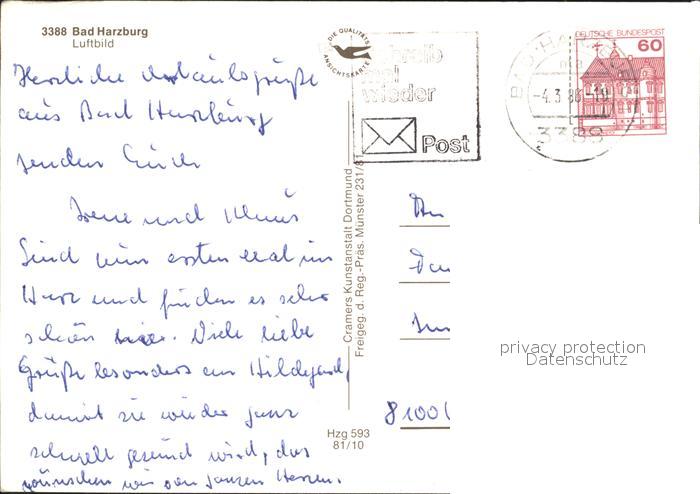 3388 Bad Harzburg
Luftbild
DIE QUALITÄTS
ANSICHTSKARTE
Schreib
mal
wieder
Post
DEUTSCHE BUNDESPOST
60
BAD HA
-4.3.86-19
3388
Herzliche Urlaubsgrüße
aus Bad Harzburg
senden Euch
Irene und Klaus
Sind zum ersten mal im
Harz und finden es sehr
schön hier. Viele liebe
Grüße besonders an Hildegard,
damit sie wieder ganz
schnell gesund wird, das
wünschen wir von ganzen Herzen.
Cramers Kunstanstalt Dortmund
Freigeg. d. Reg.-Präs. Münster 231/8
An
8100
Hzg 593
81/10
privacy protection
Datenschutz